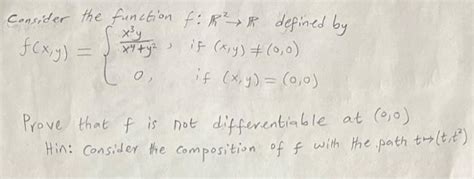 Consider the function f: ℝ² → ℝ defined by
f(x,y) = { x³y / x⁴+y² , if (x,y) ≠ (0,0)
0, if (x,y) = (0,0)
Prove that f is not differentiable at (0,0)
Hin: Consider the composition of f with the path t↦(t,t²)